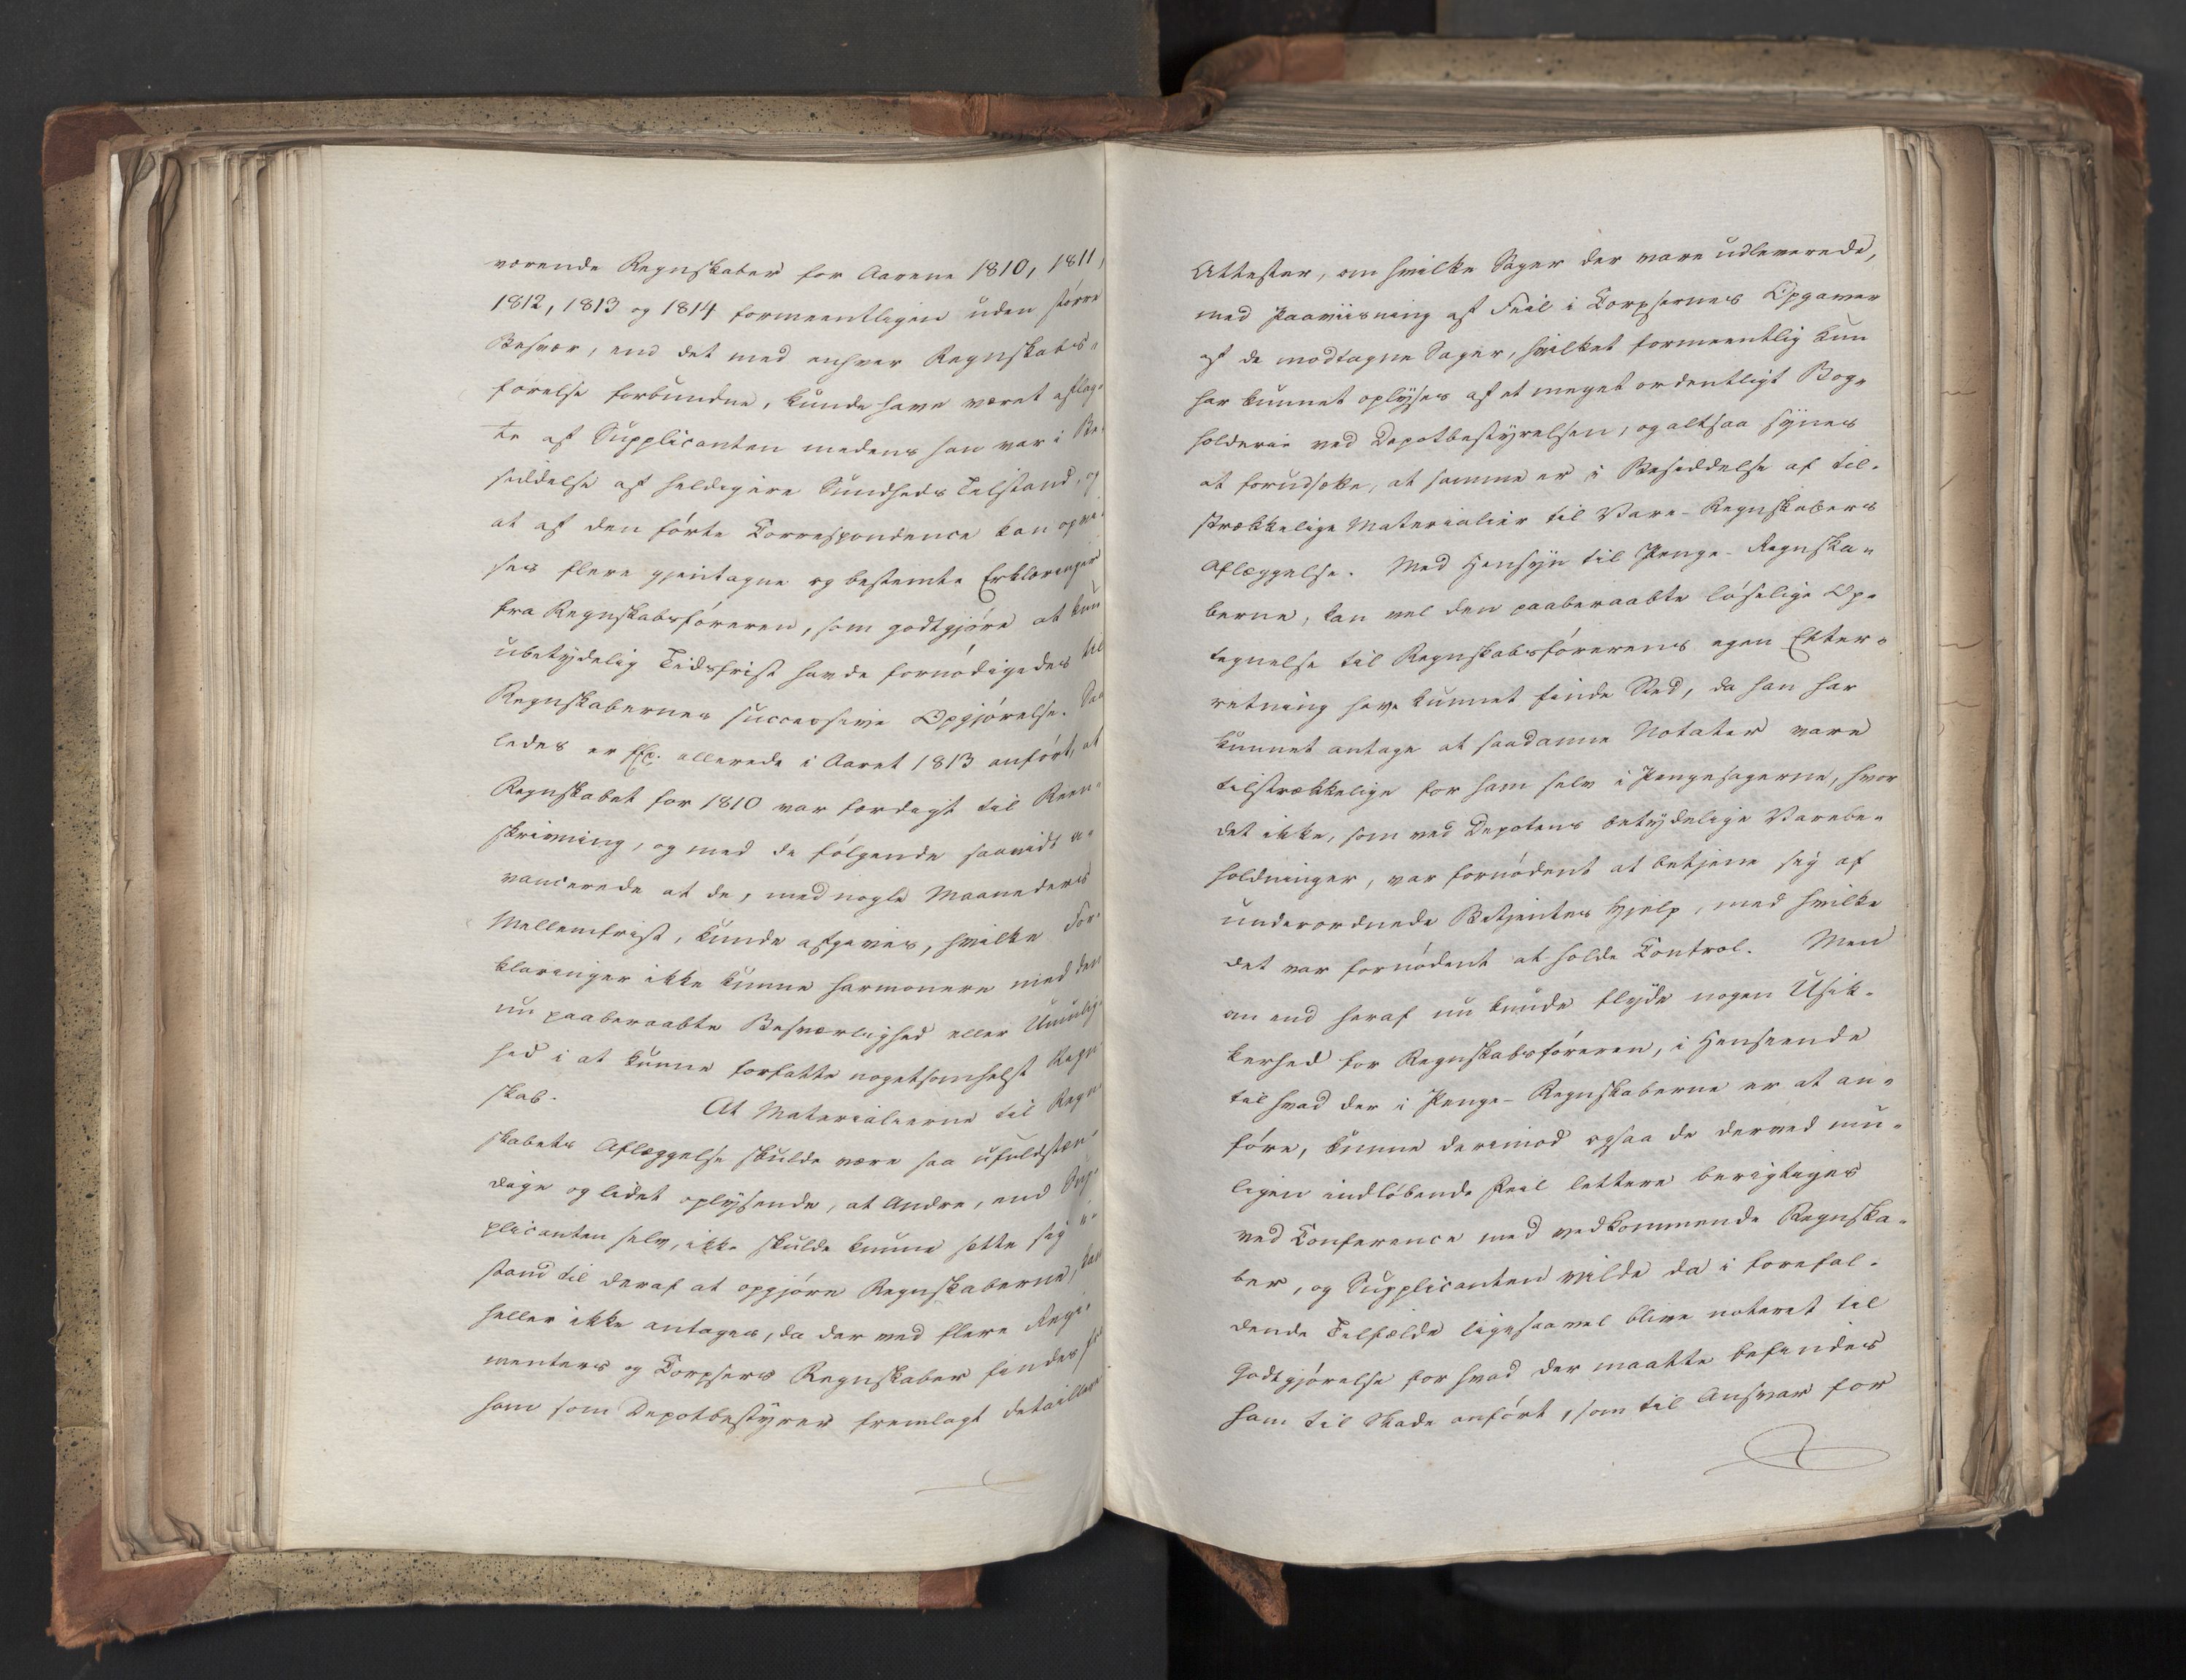 værende Regnskaber for Aarene 1810, 1811,
1812, 1813 og 1814 formeentligen uden større
Besvær, end det med enhver Regnskabs-
førelse forbundne, kunde have været aflag-
te af Supplicanten medens han var i Be-
siddelse af heldigere Sundheds Tilstand, og
at af den førte Correspondence kan opvi-
ses flere gjentagne og bestemte Erklæringer
fra Regnskabsføreren, som godtgjøre at kun
ubetydelig Tidsfrist havde fornødigedes til
Regnskabernes successive Opgjørelse. Saa
ledes er allerede i Aaret 1813 anført, at
Regnskabet for 1810 var færdigt til Reen-
skrivning, og med de følgende saavidt a-
vancerede at de, med nogle Maaneders
Mellemfrist, kunde afgives, hvilke For-
klaringer ikke kunne harmonere med den
nu paaberaabte Besværlighed eller Umulig-
hed i at kunne forfatte nogetsomhelst Regn-
skab. At Materialierne til Regn-
skabets Aflæggelse skulde være saa ufuldstæn-
dige og lidet oplysende, at Andre, end Sup-
plicanten selv, ikke skulde kunne sætte sig i-
stand til deraf at opgjøre Regnskaberne, kan
heller ikke antages, da der ved flere Regi-
menters og Corpsers Regnskaber findes fra
ham som Depotbestyrer fremlagt detaillere
Attester, om hvilke Sager der vare udleverede,
med Paaviisning af Feil i Corpsernes Opgaver
af de modtagne Sager, hvilket formeentlig kun
har kunnet oplyses af et meget ordentligt Bog-
holderie ved Depotbestyrelsen, og altsaa synes
at forudsætte, at samme er i Besiddelse af til-
strækkelige Materialier til Vare-Regnskabers
Aflæggelse. Med Hensyn til Penge-Regnska-
berne, kan vel den paaberaabte løselige Op-
tegnelse til Regnskabsførerens egen Efter-
retning have kunnet finde Sted, da han har
kunnet antage at saadanne Notater vare
tilstrækkelige for ham selv i Pengesagerne, hvor
det ikke, som ved Depotens betydelige Varebe-
holdninger, var fornødent at betjene sig af
underordnede Betjentes Hjelp, med hvilke
det var fornødent at holde Control. Men
om end heraf nu kunde flyde nogen Usik-
kerhed for Regnskabsføreren, i Henseende
til hvad der i Penge-Regnskaberne er at an-
føre, kunne derimod ogsaa de derved mu-
ligen indløbende Feil lettere berigtiges
ved Conference med vedkommende Regnska-
ber, og Supplicanten vilde da i forefal-
dende Tilfælde ligesaavel blive noteret til
Godtgjørelse for hvad der maatte befindes
ham til Skade anført, som til Ansvar for